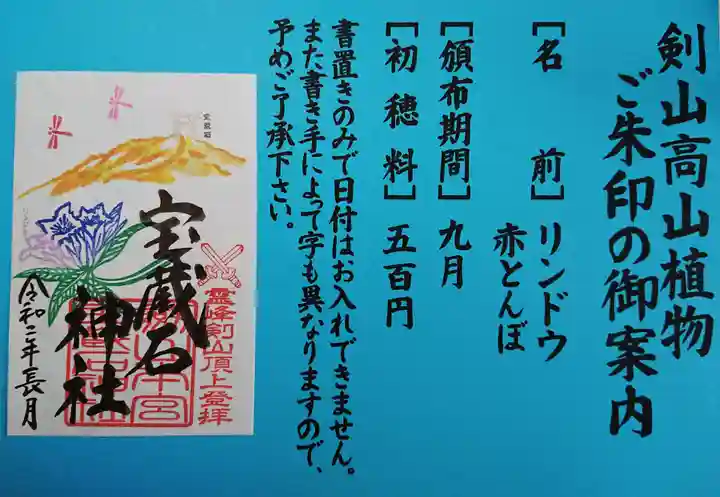 剣山高山植物
ご朱印の御案内
[名前] リンドウ
赤とんぼ
[頒布期間] 九月
[初穂料] 五百円
書置きのみで日付はお入れできません。
また書き手によって字も異なりますので、
予めご了承下さい。
宝蔵石
霊峰剣山頂上登拝
宝蔵石
神社
令和二年長月